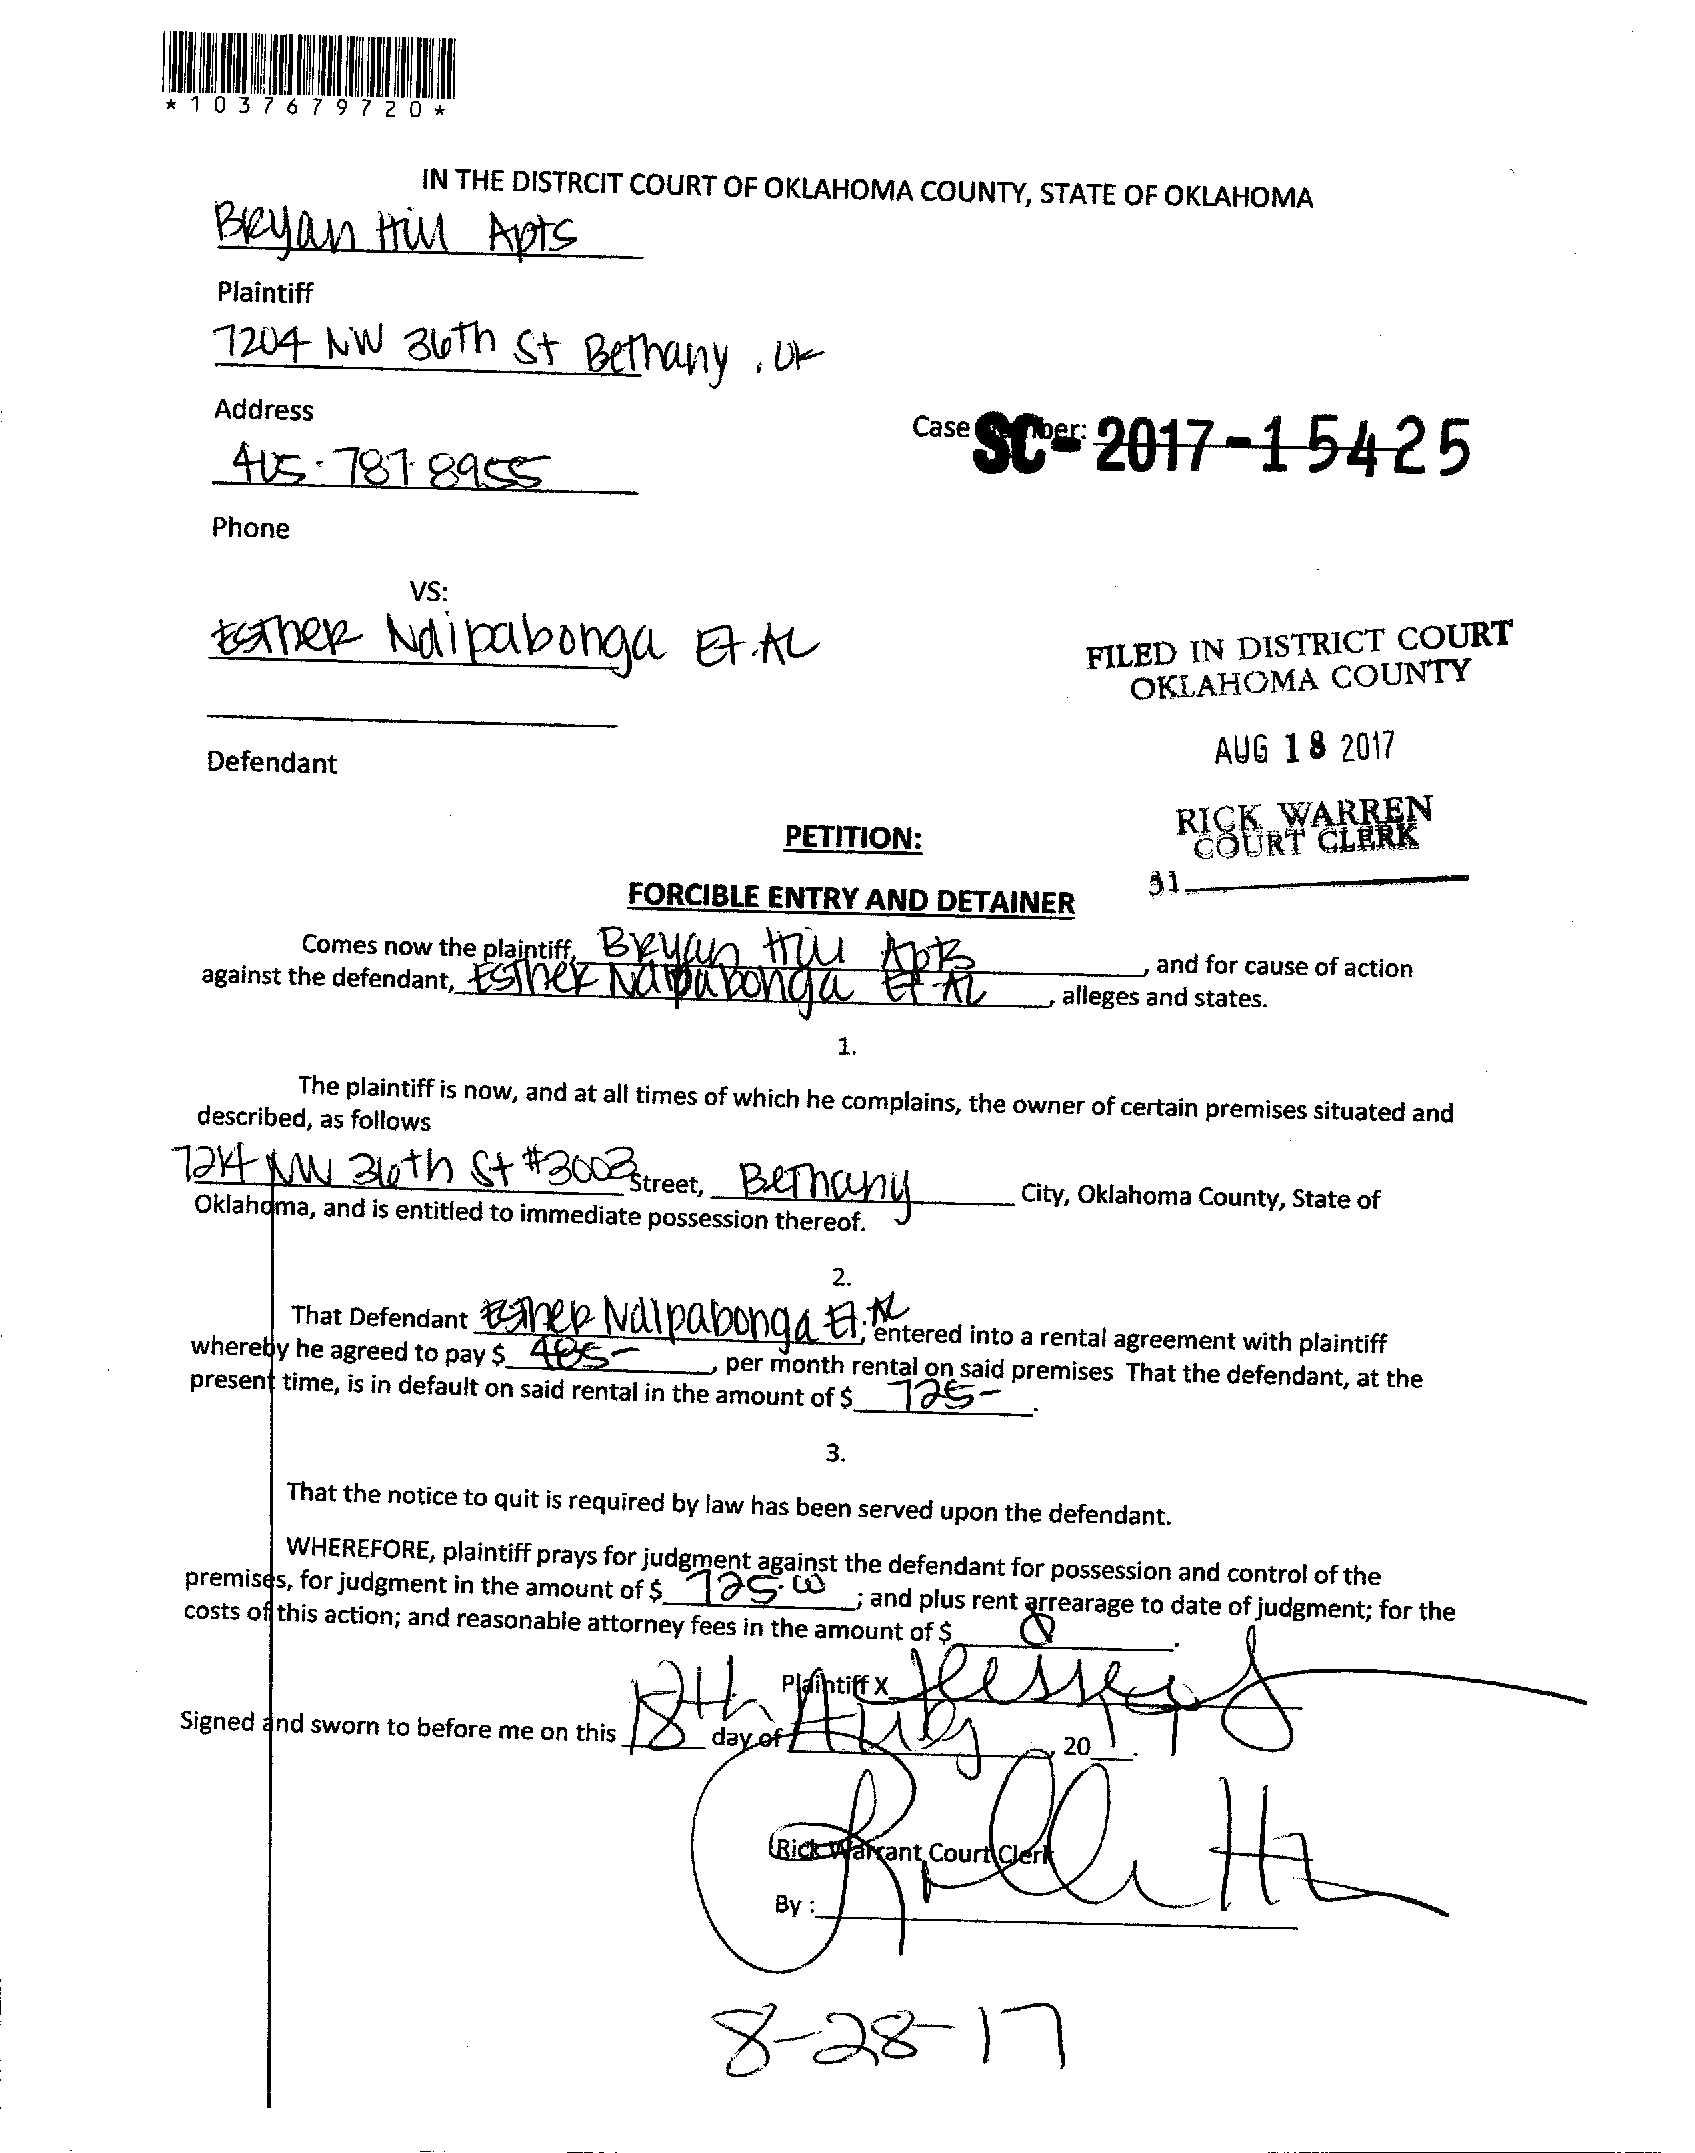 *1037679720*
IN THE DISTRCIT COURT OF OKLAHOMA COUNTY, STATE OF OKLAHOMA
Bryan Hill Apts
Plaintiff
7204 NW 36th St Bethany, OK
Address
Case SC-2017-15425
405-787-8955
Phone
VS:
Esther Ndipabonga Et.AL
FILED IN DISTRICT COURT
OKLAHOMA COUNTY
AUG 18 2017
Defendant
RICK WARREN
COURT CLERK
31
PETITION:
FORCIBLE ENTRY AND DETAINER
Comes now the plaintiff, Bryan Hill Apts, and for cause of action
against the defendant, Esther Ndipabonga Et AL, alleges and states.
1.
The plaintiff is now, and at all times of which he complains, the owner of certain premises situated and
described, as follows
7214 NW 36th St #3003 Street, Bethany City, Oklahoma County, State of
Oklahoma, and is entitled to immediate possession thereof.
2.
That Defendant Esther Ndipabonga Et. AL, entered into a rental agreement with plaintiff
whereby he agreed to pay $ , per month rental on said premises That the defendant, at the
present time, is in default on said rental in the amount of $ 725-.
3.
That the notice to quit is required by law has been served upon the defendant.
WHEREFORE, plaintiff prays for judgment against the defendant for possession and control of the
premises, for judgment in the amount of $ 725.00; and plus rent arrearage to date of judgment; for the
costs of this action; and reasonable attorney fees in the amount of $ .
Plaintiff X
Signed and sworn to before me on this 18th day of Aug, 20 .
Rick Warrant Court Clerk
By :
8-28-17